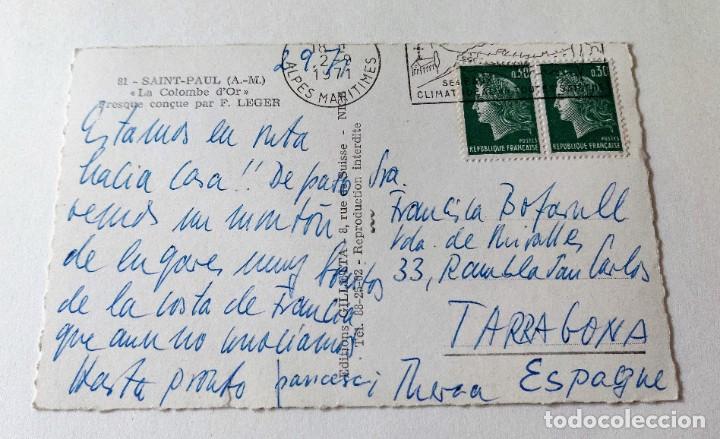 81 - SAINT-PAUL (A.-M.)
«La Colombe d'Or»
Fresque conçue par F. LEGER
1971
ALPES MARITIMES
CLIMAT
0,30
0,30
POSTES
POSTES
REPUBLIQUE FRANÇAISE
REPUBLIQUE FRANÇAISE
Estamos en ruta
hacia casa!! De paso
vemos un montón
de lugares muy bonitos
de la costa de Francia
que aun no conocíamos
Hasta pronto
Editions GILLETTA - 8, rue de Suisse - NICE
Tél. 88-25-02 - Reproduction interdite
Sra.
Francisca Bofarull
Vda. de Miralles
33, Rambla San Carlos
TARRAGONA
Espagne
todocoleccion